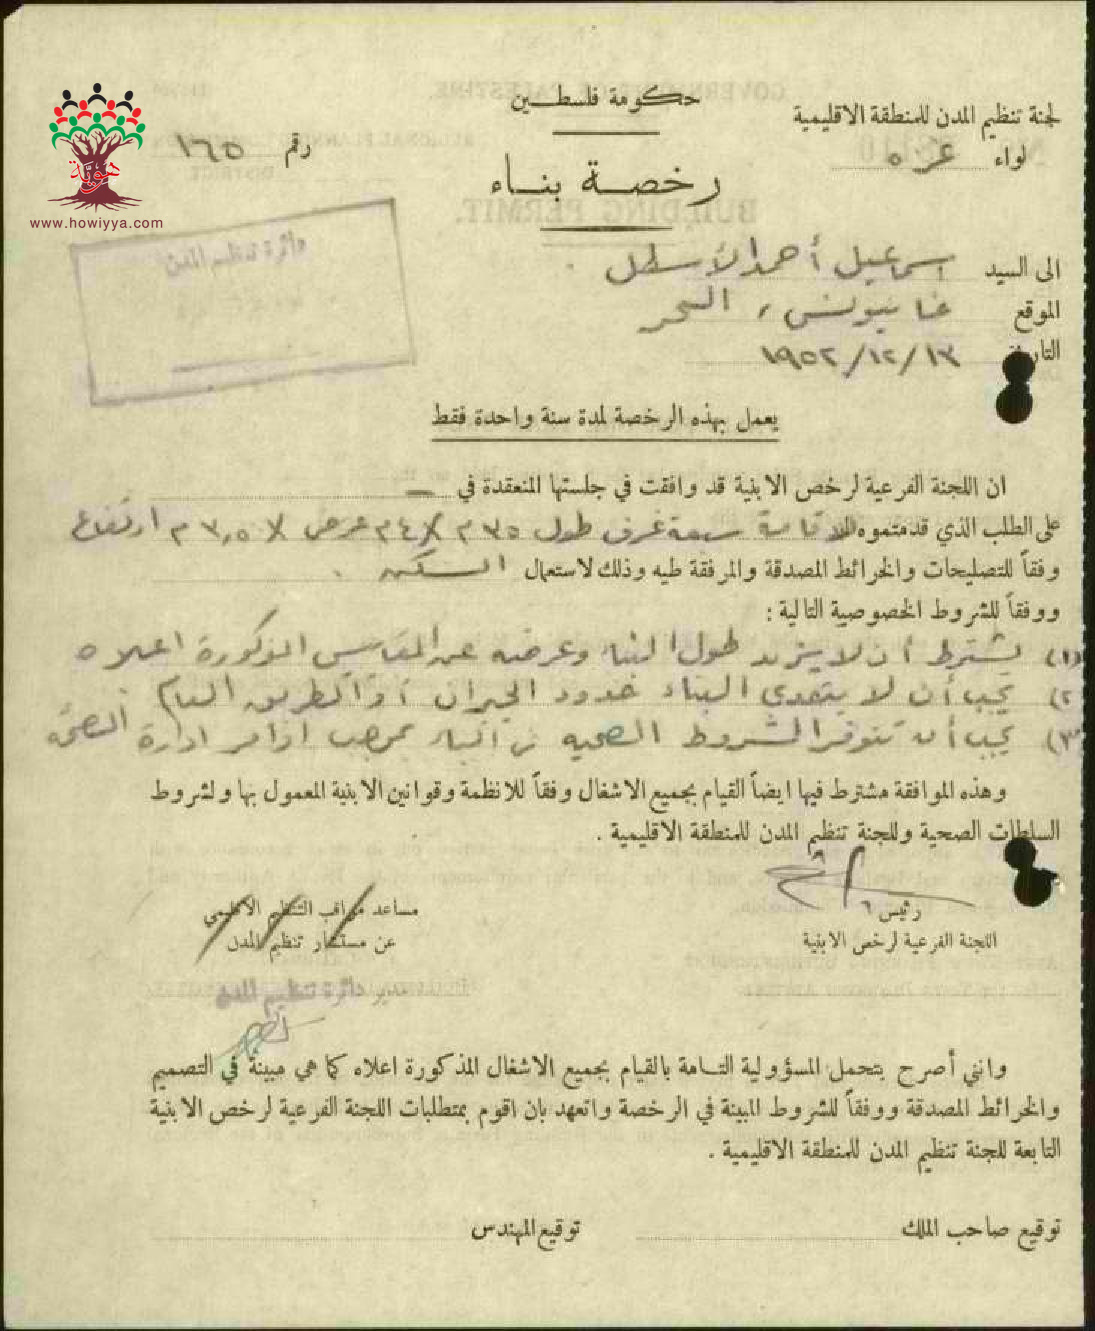 حكومة فلسطين
لجنة تنظيم المدن للمنطقة الاقليمية
لواء غزه
رقم ١٦٥
هوية
www.howiyya.com
رخصة بناء
دائرة تنظيم المدن
الى السيد اسماعيل أحمد الأسطل
الموقع خانيونس، السحر
التاريخ ١٣/١٢/١٩٥٢
يعمل بهذه الرخصة لمدة سنة واحدة فقط
ان اللجنة الفرعية لرخص الابنية قد وافقت في جلستها المنعقدة في ـــ
على الطلب الذي قدمتموه لاقامة سبعة غرف طول ٣٥ م X ٢٤ م عرض X ٣,٥ م ارتفاع
وفقاً للتصليحات والخرائط المصدقة والمرفقة طيه وذلك لاستعمال السكن .
ووفقاً للشروط الخصوصية التالية :
(١) يشترط أن لا يزيد طول البناء وعرضه عن المقاس المذكورة اعلاه
(٢) يجب أن لا يتعدى البناء حدود الجيران أو الطريق العام .
(٣) يجب أن تتوفر الشروط الصحيه في البناء بموجب اوامر ادارة الصحة
وهذه الموافقة مشترط فيها ايضاً القيام بجميع الاشغال وفقاً للانظمة وقوانين الابنية المعمول بها ولشروط
السلطات الصحية وللجنة تنظيم المدن للمنطقة الاقليمية .
رئيس
اللجنة الفرعية لرخص الابنية
مساعد مراقب التنظيم الاقليمي
عن مستشار تنظيم المدن
مدير دائرة تنظيم المدن
وانني أصرح بتحمل المسؤولية التامة بالقيام بجميع الاشغال المذكورة اعلاه كما هي مبينة في التصميم
والخرائط المصدقة ووفقاً للشروط المبينة في الرخصة واتعهد بان اقوم بمتطلبات اللجنة الفرعية لرخص الابنية
التابعة للجنة تنظيم المدن للمنطقة الاقليمية .
توقيع صاحب الملك
توقيع المهندس